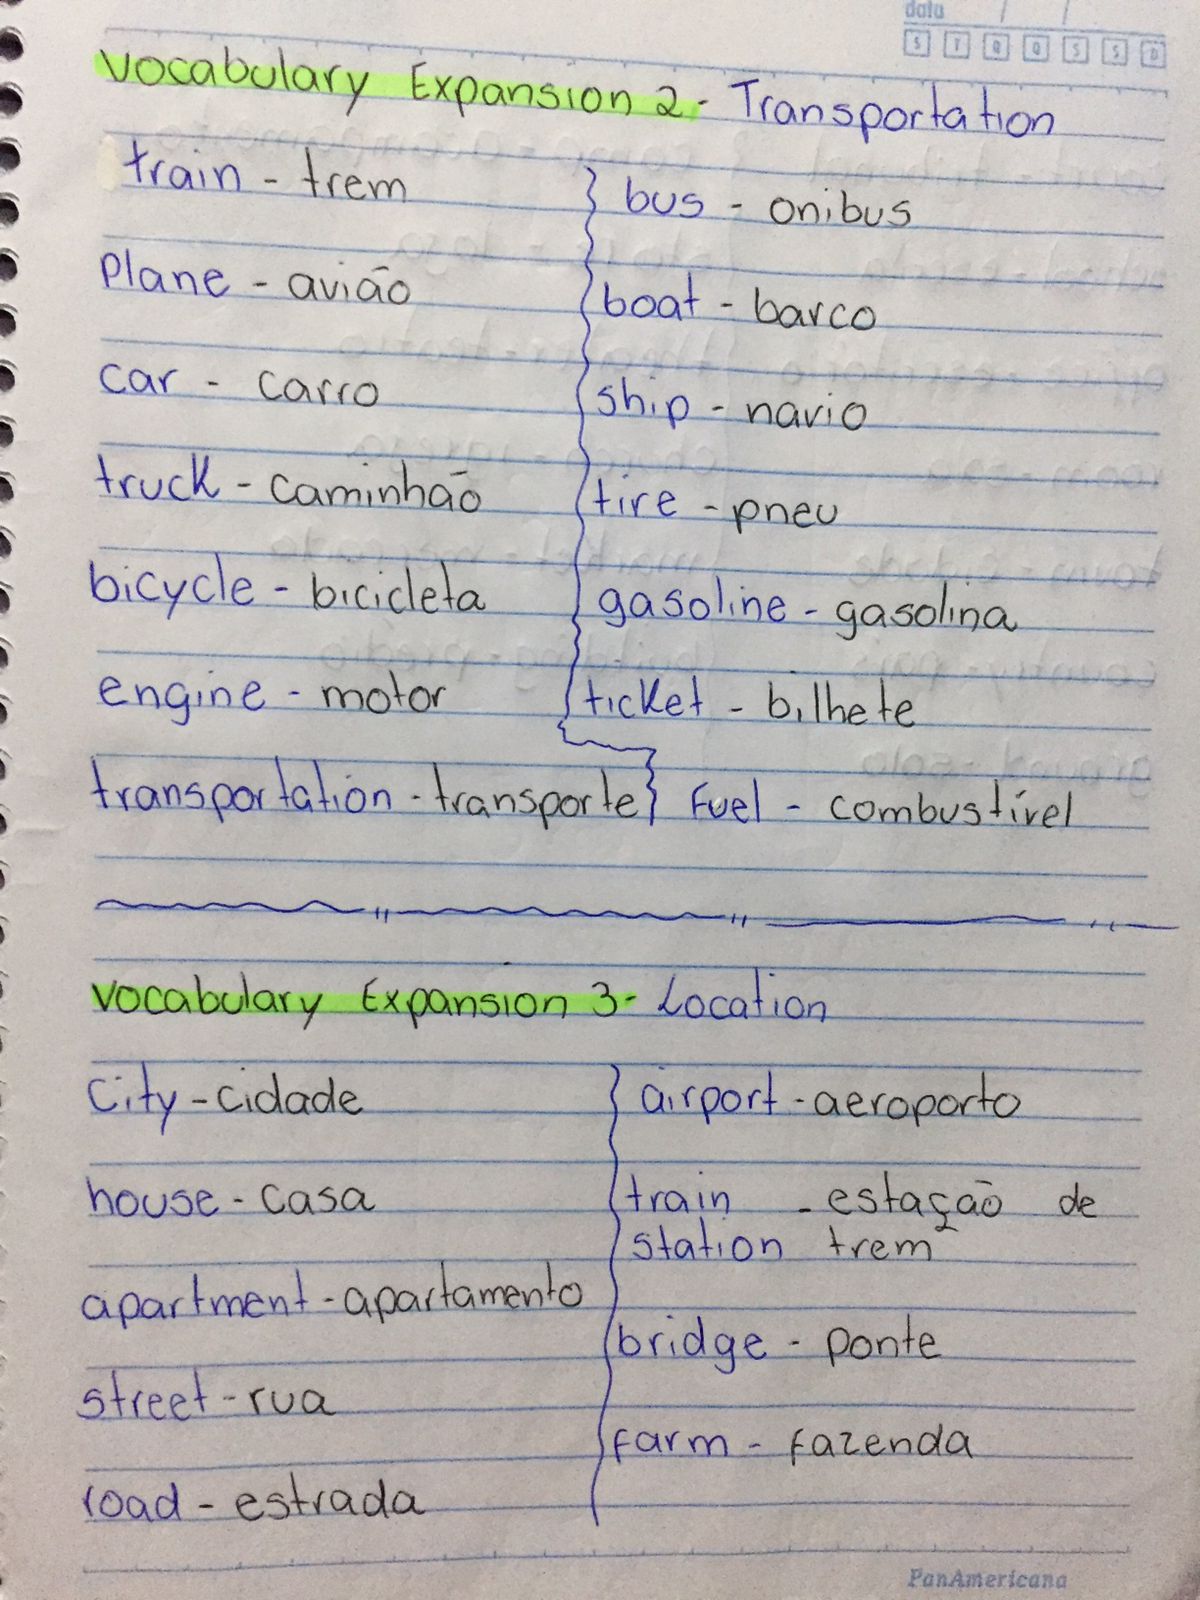 data
S T Q Q S S D
Vocabulary Expansion 2 - Transportation
train - trem
plane - avião
car - carro
truck - caminhão
bicycle - bicicleta
engine - motor
transportation - transporte
bus - onibus
boat - barco
ship - navio
tire - pneu
gasoline - gasolina
ticket - bilhete
Fuel - combustível
Vocabulary Expansion 3 - Location
City - cidade
house - casa
apartment - apartamento
street - rua
road - estrada
airport - aeroporto
train - estação de
station trem
bridge - ponte
farm - fazenda
PanAmericana